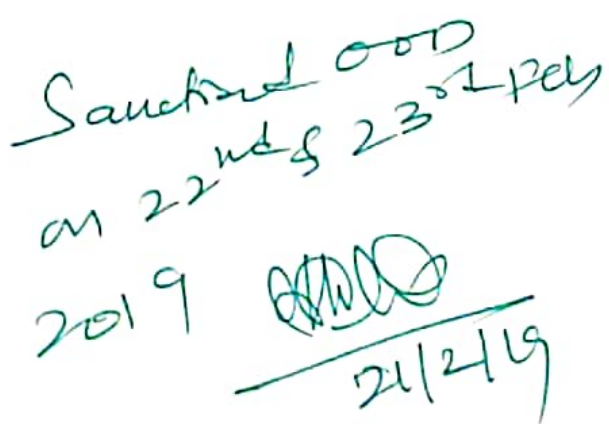 Sanctioned OOD
on 22nd & 23rd Feb
2019
21/2/19